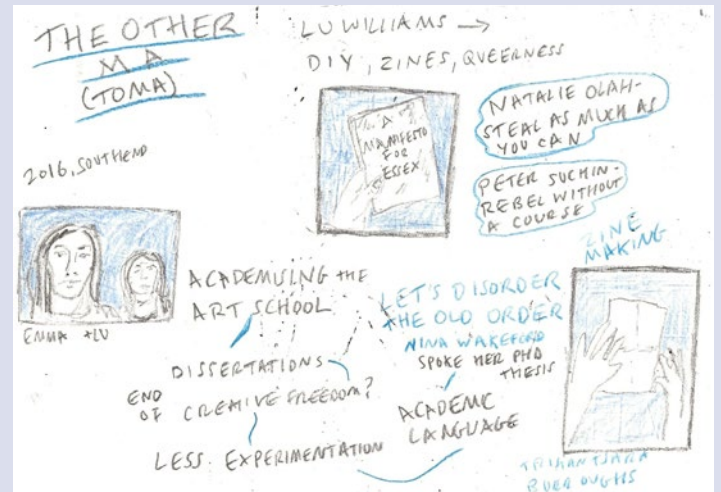 THE OTHER
MA
(TOMA)
LU WILLIAMS →
DIY, ZINES, QUEERNESS
2016, SOUTHEND
A
MANIFESTO
FOR
ESSEX
NATALIE OLAH-
STEAL AS MUCH AS
YOU CAN
PETER SUCHIN-
REBEL WITHOUT
A COURSE
ZINE
MAKING
EMMA + LU
ACADEMISING THE
ART SCHOOL
LET'S DISORDER
THE OLD ORDER
NINA WAKEFORD
SPOKE HER PHD
THESIS
DISSERTATIONS
END
OF CREATIVE FREEDOM?
LESS EXPERIMENTATION
ACADEMIC
LANGUAGE
TRISTAN TSARA
BURROUGHS